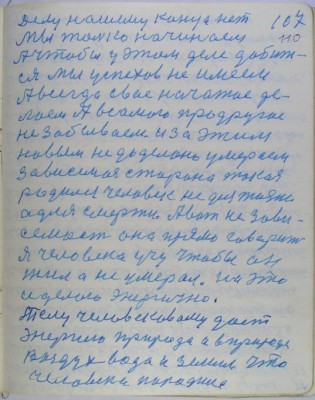 Делу нашему конца нет 107
Мы только начинаем 110
А чтобы у этом деле добит-
ся мы успехов не имеем
А всегда свое начатое де-
лаем А всамого продругое
не забываем из за этим
новым не доделано умераем
Зависимая сторона такая
родился человек не для жизни
а для смерти. А вот не зави-
семость она прямо говорит
я человека учу чтобы он
жил а не умерал. На это
и делого энергично.
Телу человеческому дает
энергию природа а в природе
воздух вода и земля что
человека породило